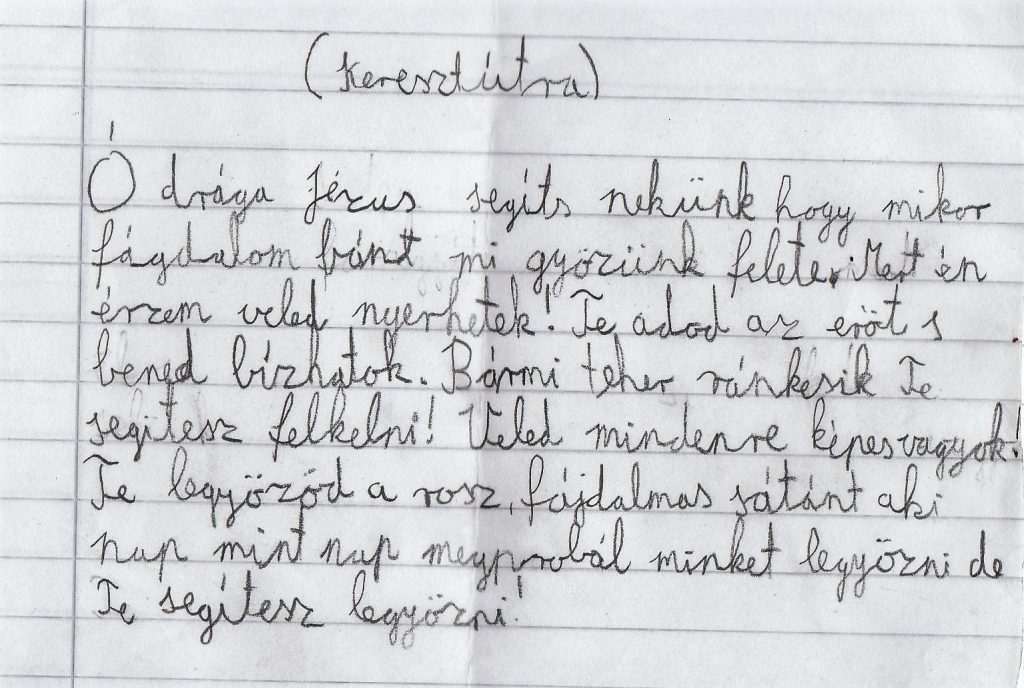 (Keresztútra)
Ó drága Jézus segíts nekünk hogy mikor
fágdalom bánt mi győzünk felete. Mert én
érzem veled nyerhetek! Te adod az erőt s
bened bízhatok. Bármi teher ránkesik Te
segítesz felkelni! Veled mindenre képesvagyok!
Te legyőződ a rosz, fájdalmas sátánt aki
nap mint nap megprobál minket legyőzni de
Te segítesz legyőzni!